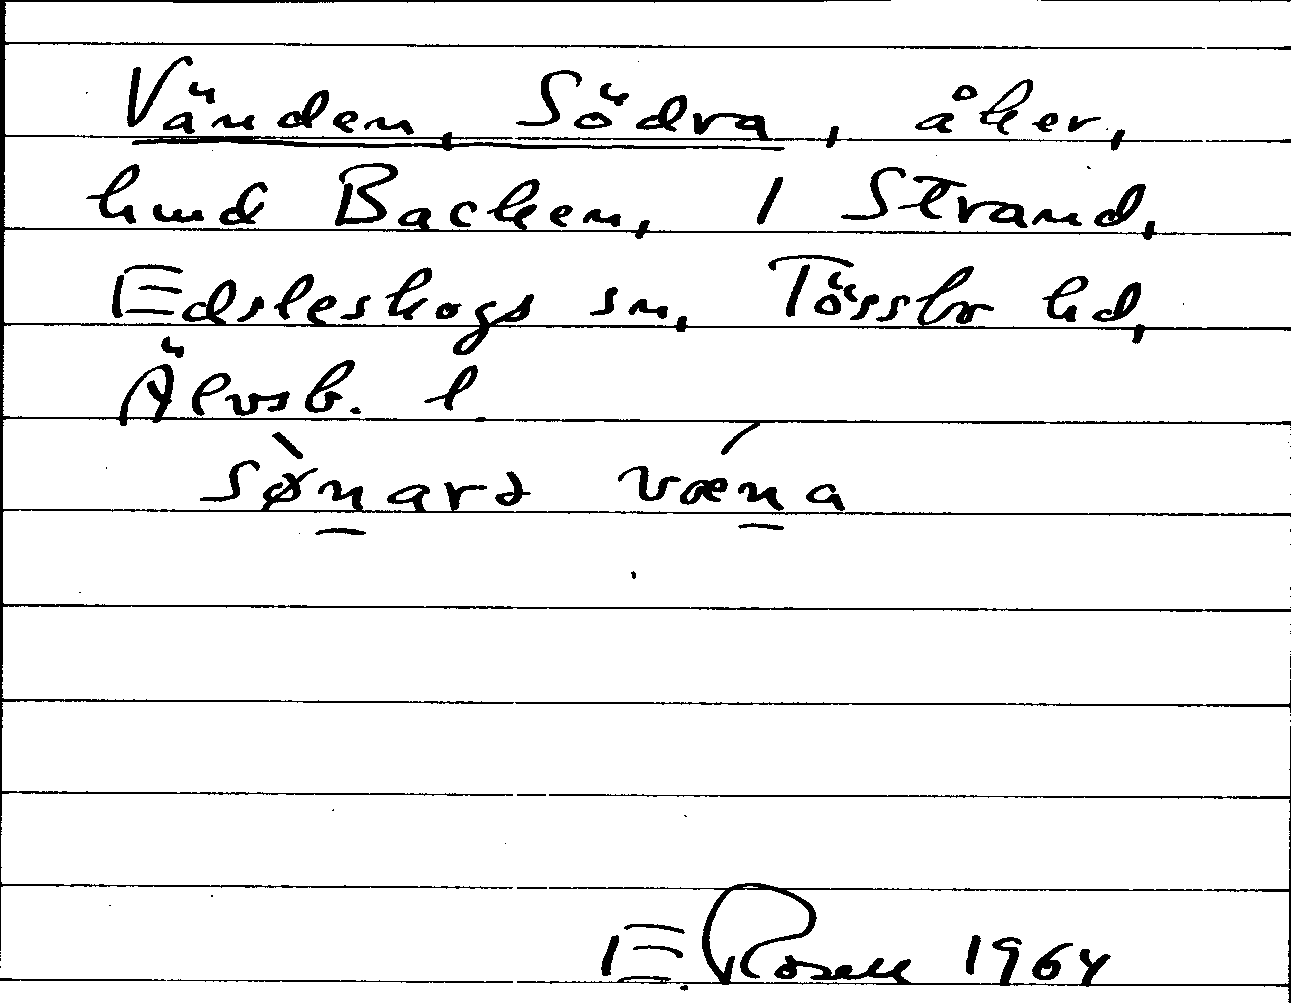 Vänden, Södra, åker,
hmd Backen, 1 Strand,
Edsleskogs sn, Tössbo hd,
Älvsb. l.
sø̀narə vǽna
E Rosell 1964